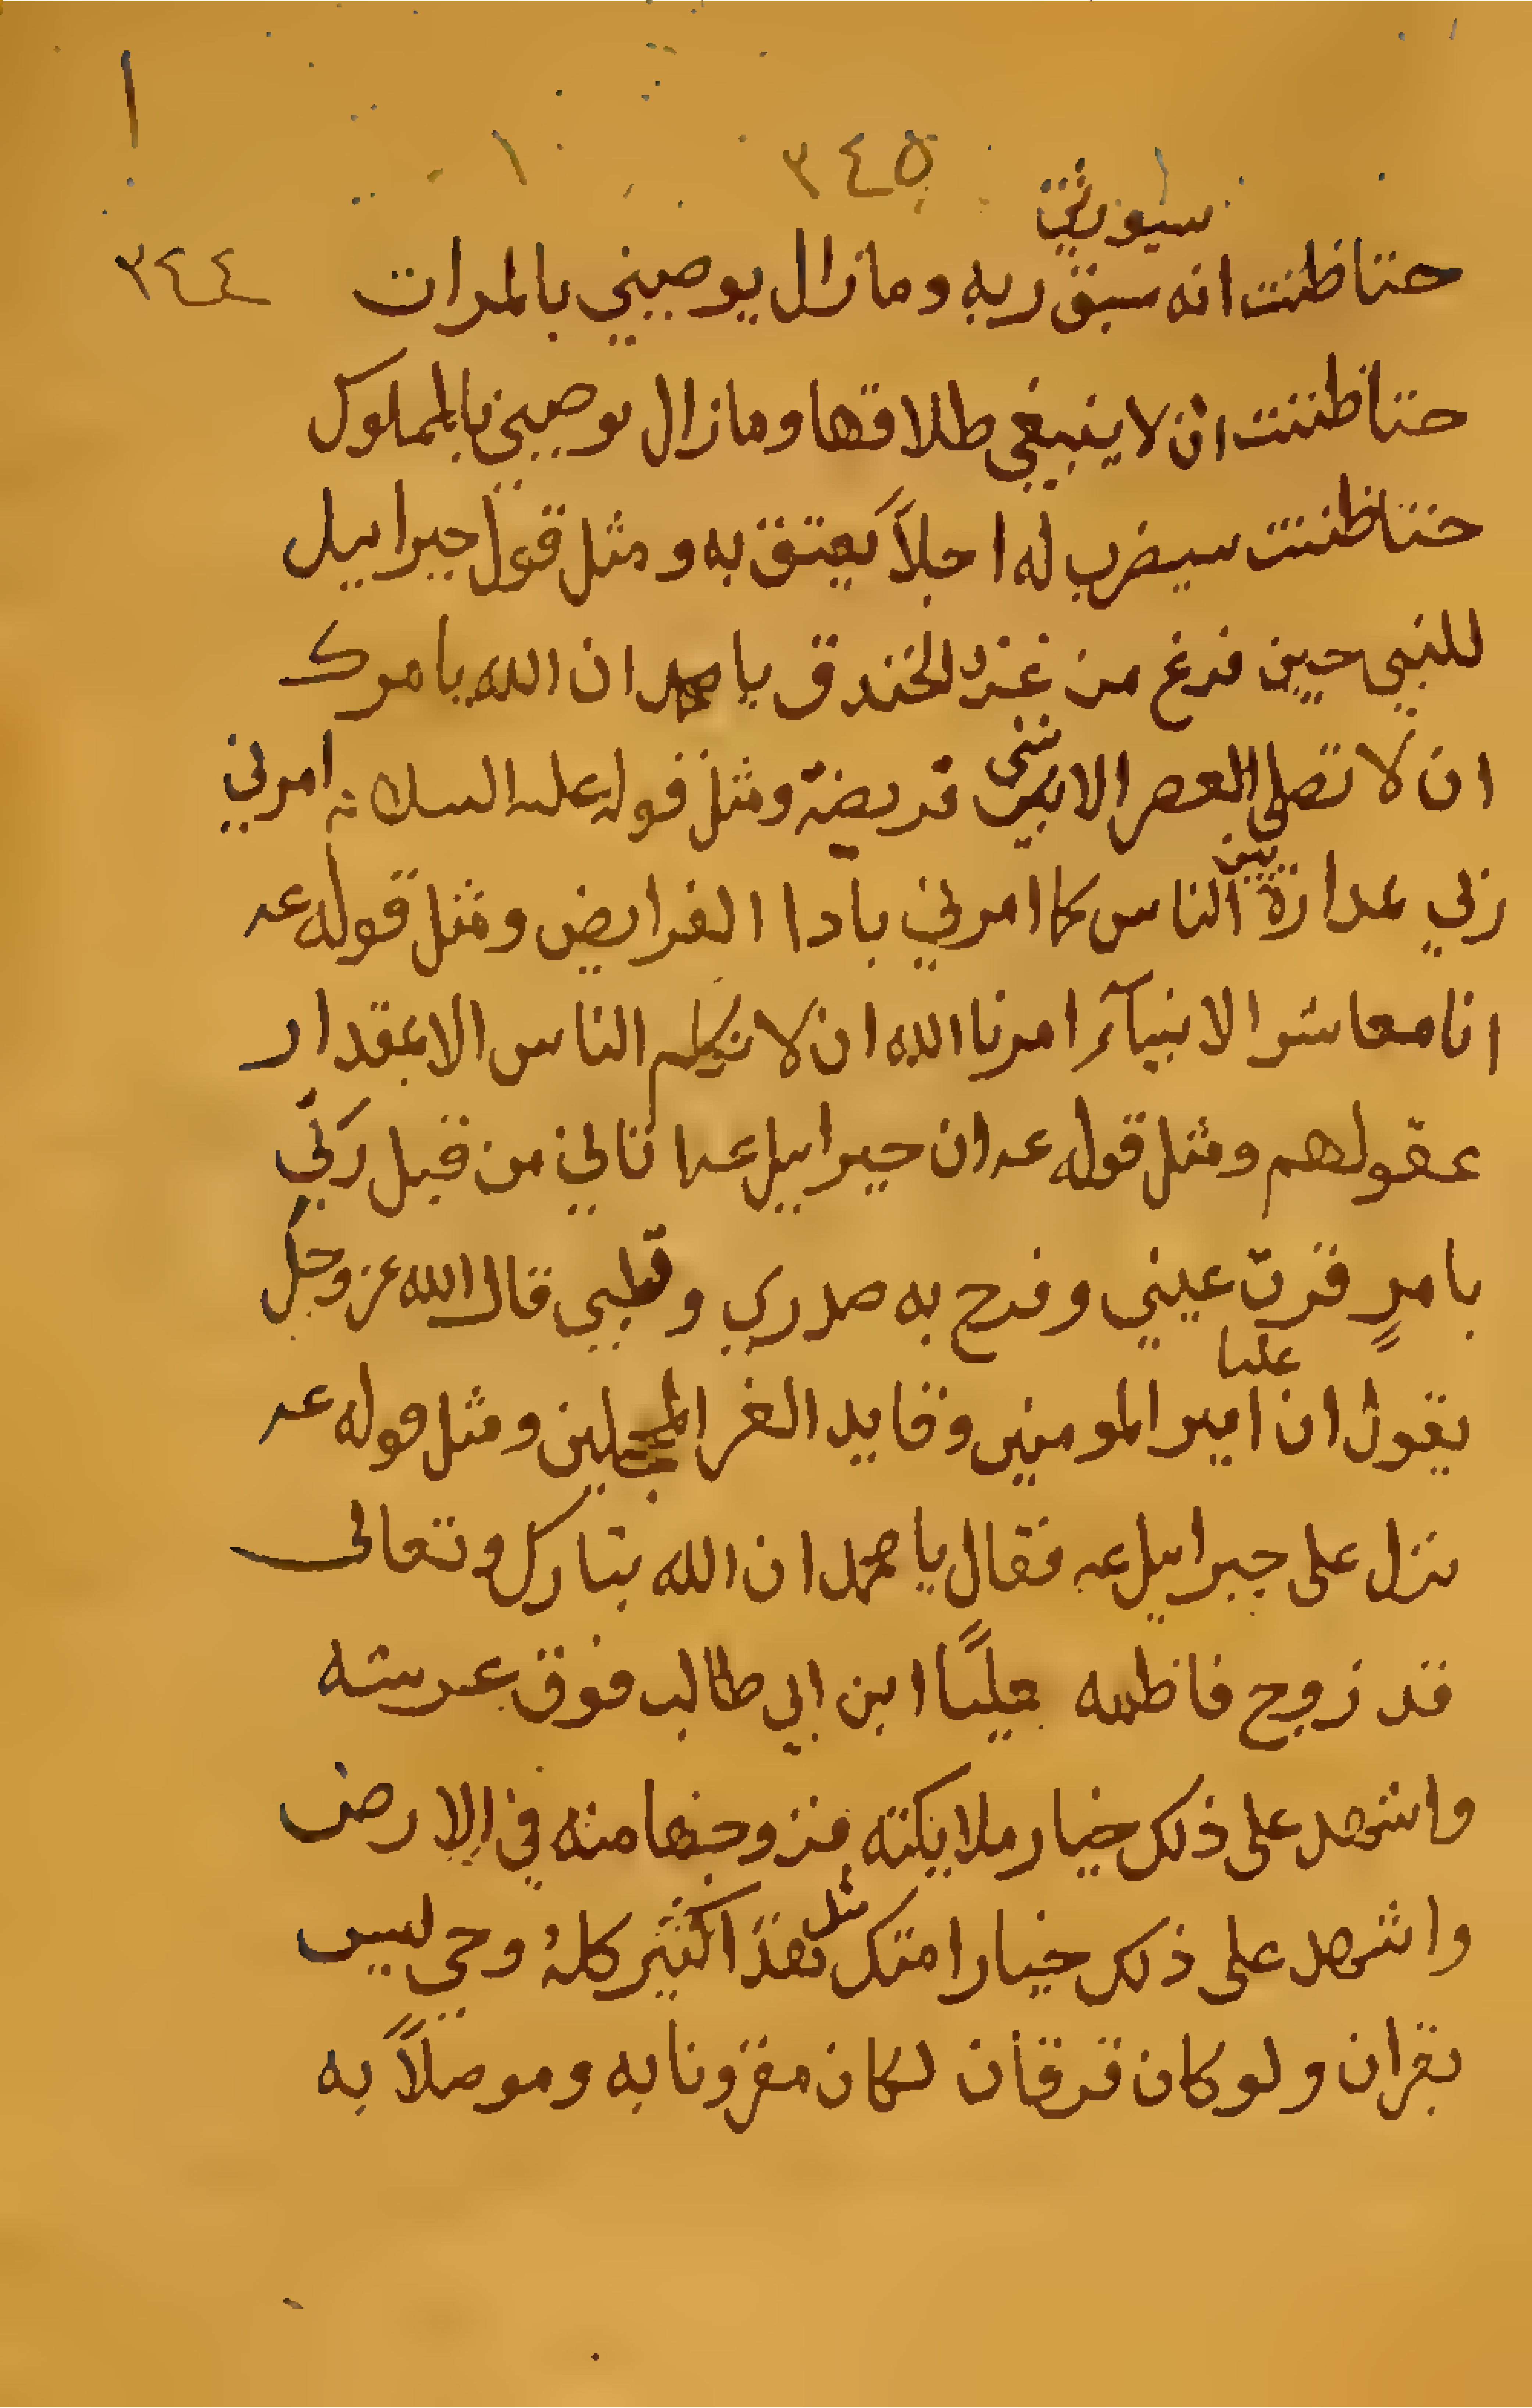 ٣٤٥
سيورثني
حتنا ظنت انه سبق ربه وما زال يوصيني بالمرات
٣٤٤
حتنا ظننت ان لا ينبغي طلاقها وما زال يوصيني بالمملوك
حتنا ظننت سيضرب له اجلاً يعتق به ومثل قول جبراييل
للنبي حين فرغ من غزه الخندق يا محمد ان الله يامرك
ان لا تصلي العصر الا ببني قريضة ومثل قوله عليه السلام امرني
ربي بمداراة بين الناس كما امرني بادا الفرايض ومثل قوله عه
انا معاشر الانبيآء امرنا الله ان لا نكلم الناس الا بمقدار
عقولهم ومثل قوله عه ان جبراييل عه اتاني من قبل ربّي
بامرٍ قرت عيني وفرح به صدري وقلبي قال الله عز وجل
يقول ان عليا امير المومنين وقايد الغر المحجلين ومثل قوله عه
نزل على جبراييل عه فقال يا محمد ان الله تبارك وتعالى
قد زوج فاطمه بعليًا ابن ابي طالب فوق عرشه
واشهد على ذلك خيار ملايكته فزوجها منه في الارض
واشهد على ذلك خيار امتك مثل هذا كثير كلهُ وحي ليس
بقران ولو كان قرقان لكان مقرونا به وموصلاً به